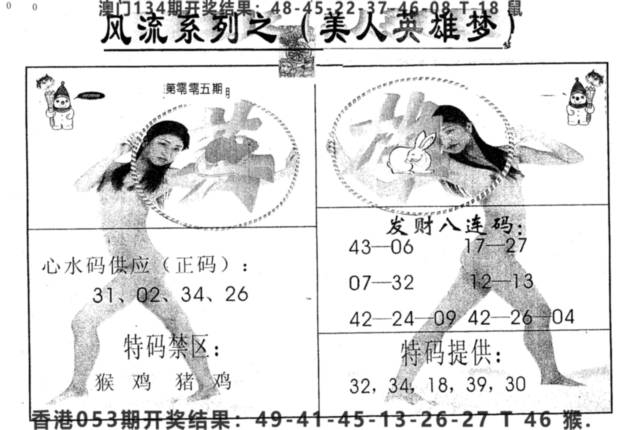 澳门134期开奖结果：48-45-22-37-46-08 T 18 鼠
风流系列之（美人英雄梦）
第零零五期
英
心水码供应（正码）：
31、02、34、26
特码禁区：
猴 鸡 猪 鸡
发财八连码：
43—06 17—27
07—32 12—13
42—24—09 42—26—04
特码提供：
32, 34, 18, 39, 30
香港053期开奖结果：49-41-45-13-26-27 T 46 猴.